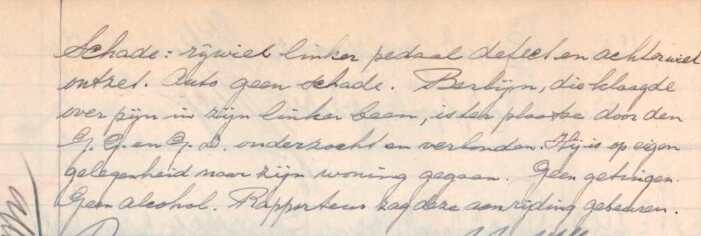 Schade: rijwiel linker pedaal defect en achterwiel
ontzet. Auto geen schade. Berlijn, die klaagde
over pijn in zijn linker been, is ter plaatse door den
G.G. en G.D. onderzocht en verbonden. Hij is op eigen
gelegenheid naar zijn woning gegaan. Geen getuigen.
Geen alcohol. Rapporteur zag deze aanrijding gebeuren.